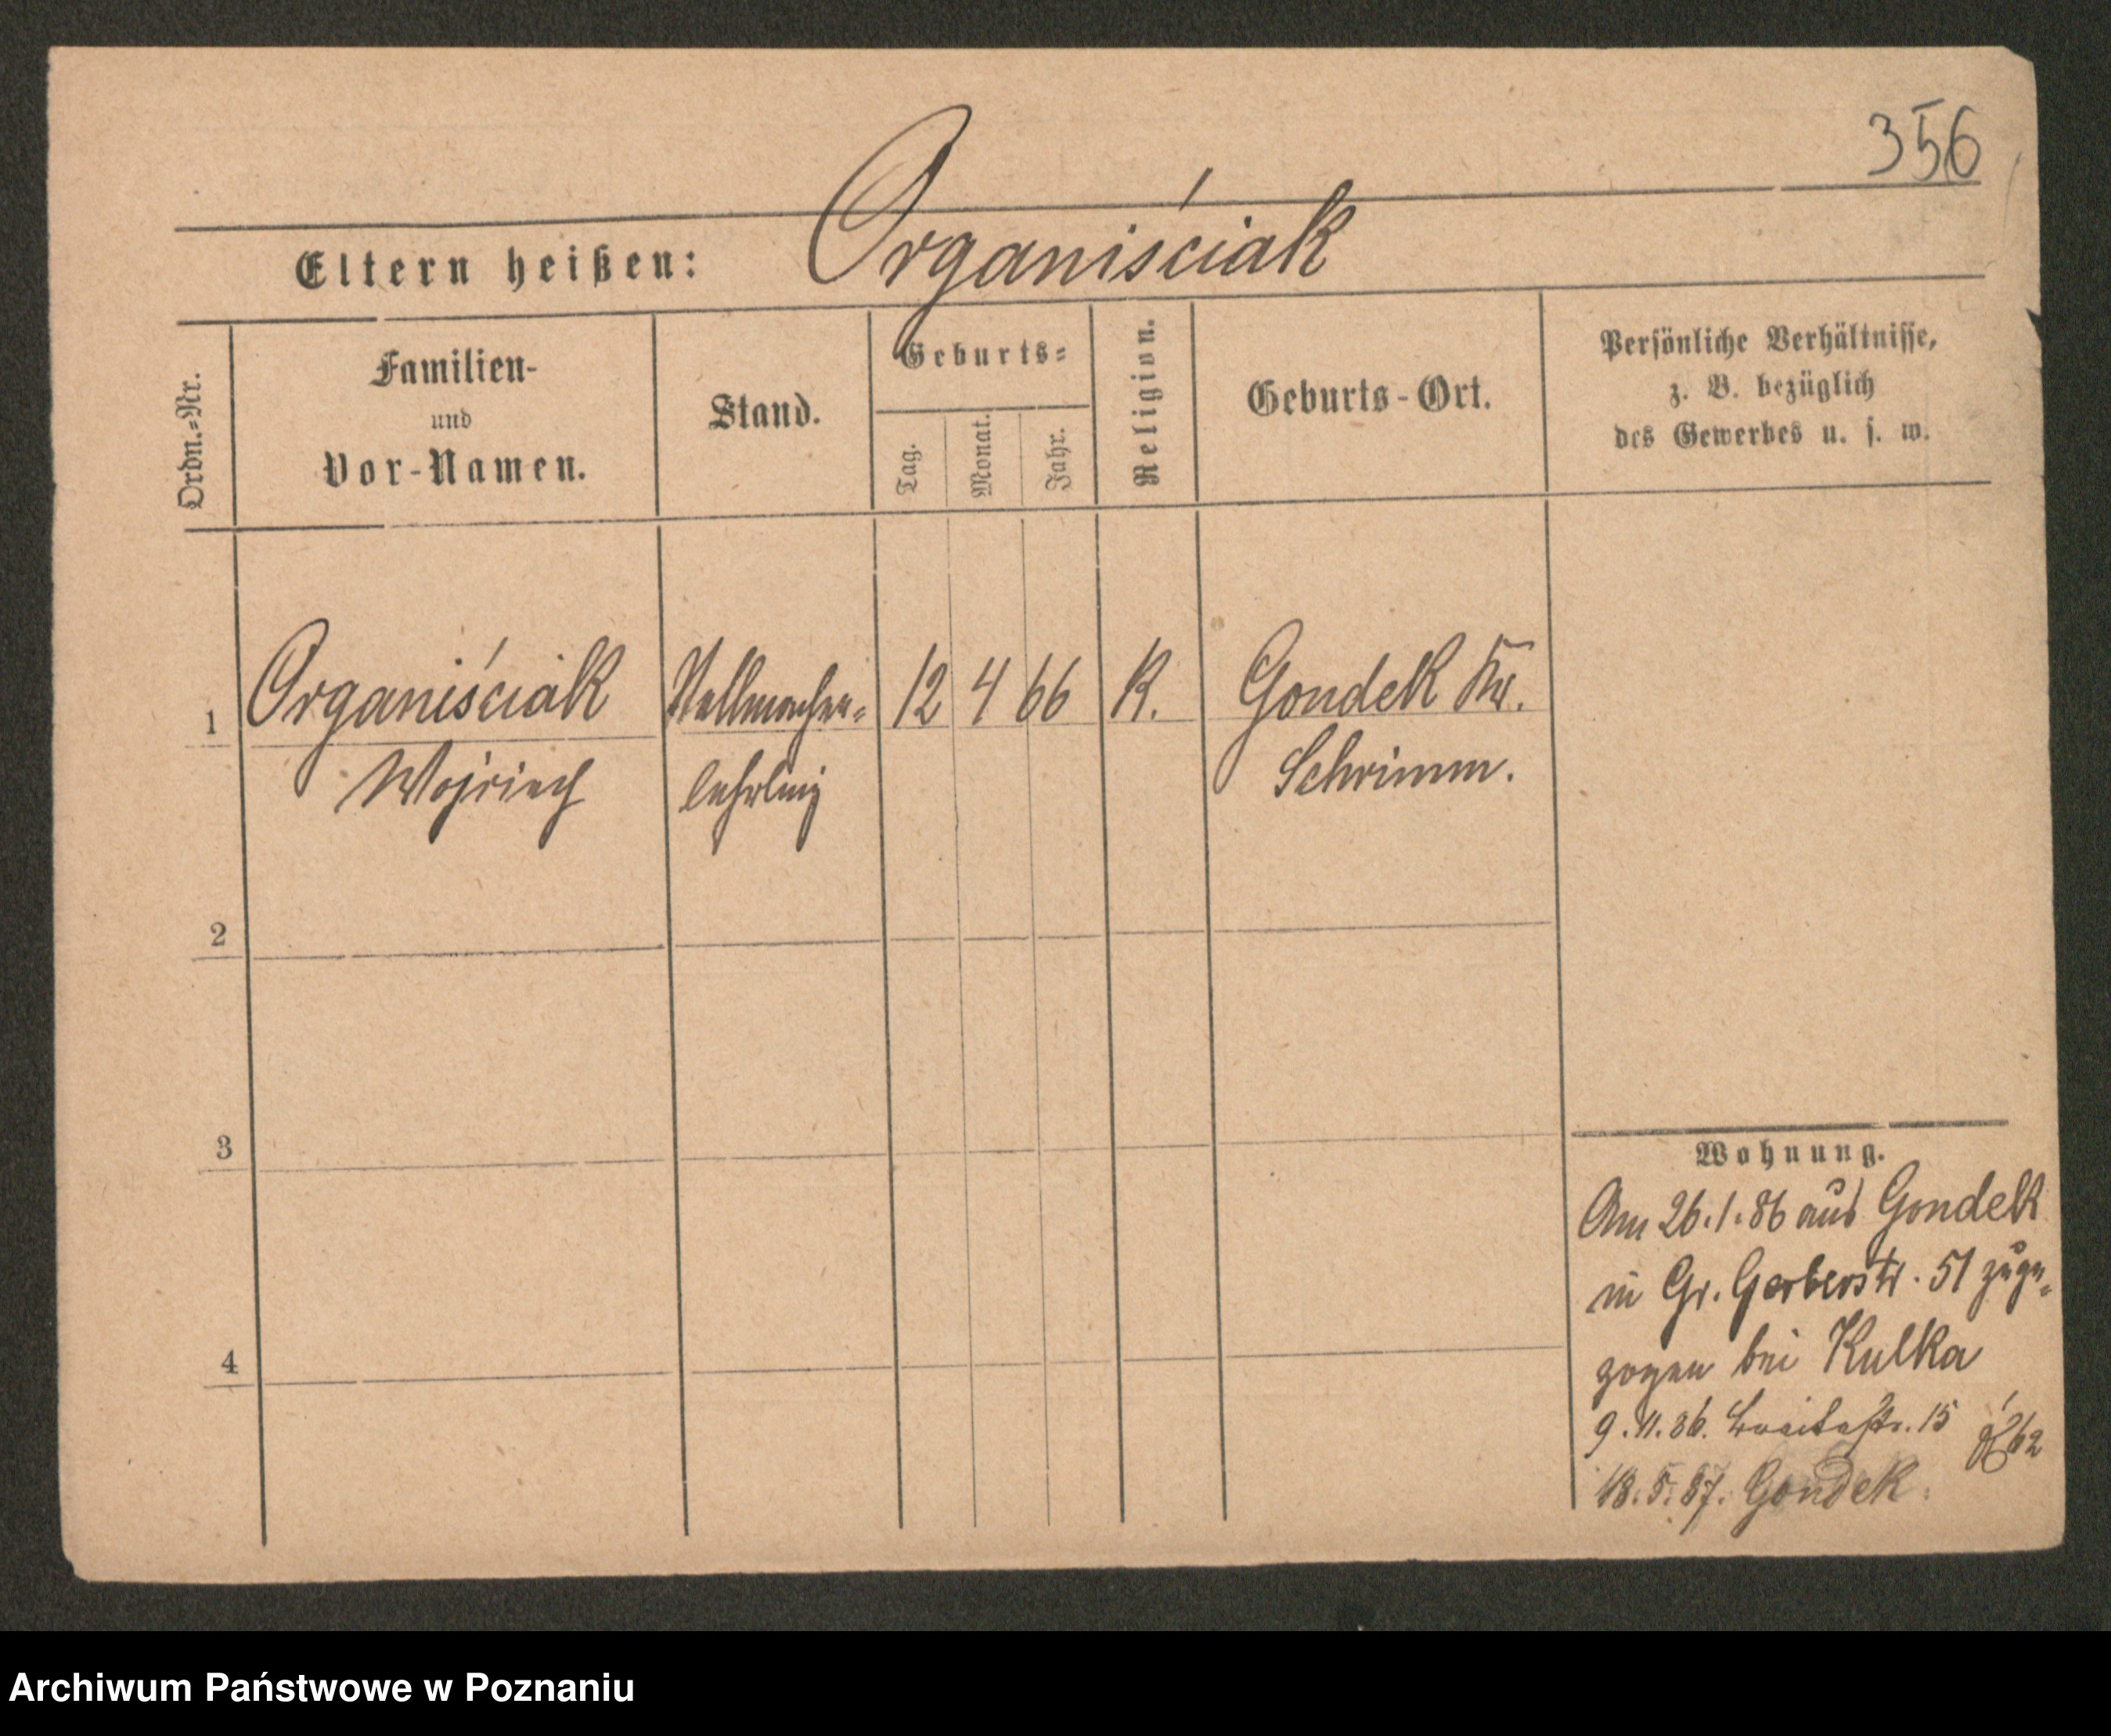 356
Eltern heißen: Organiściak
Ordn.-Nr.
Familien-
und
Vor-Namen.
Stand.
Geburts-
Tag.
Monat.
Jahr.
Religion.
Geburts-Ort.
Persönliche Verhältnisse,
z. B. bezüglich
des Gewerbes u. s. w.
1 Organiściak Stellmacher- 12 4 66 K. Gondek Kr.
Wojciech lehrling Schrimm.
2
3
4
Wohnung.
Am 26.1.86 aus Gondek
in Gr. Gerberstr. 51 zuge-
zogen bei Kulka
9.11.86. Breitestr. 15
18.5.87. Gondek.
Archiwum Państwowe w Poznaniu